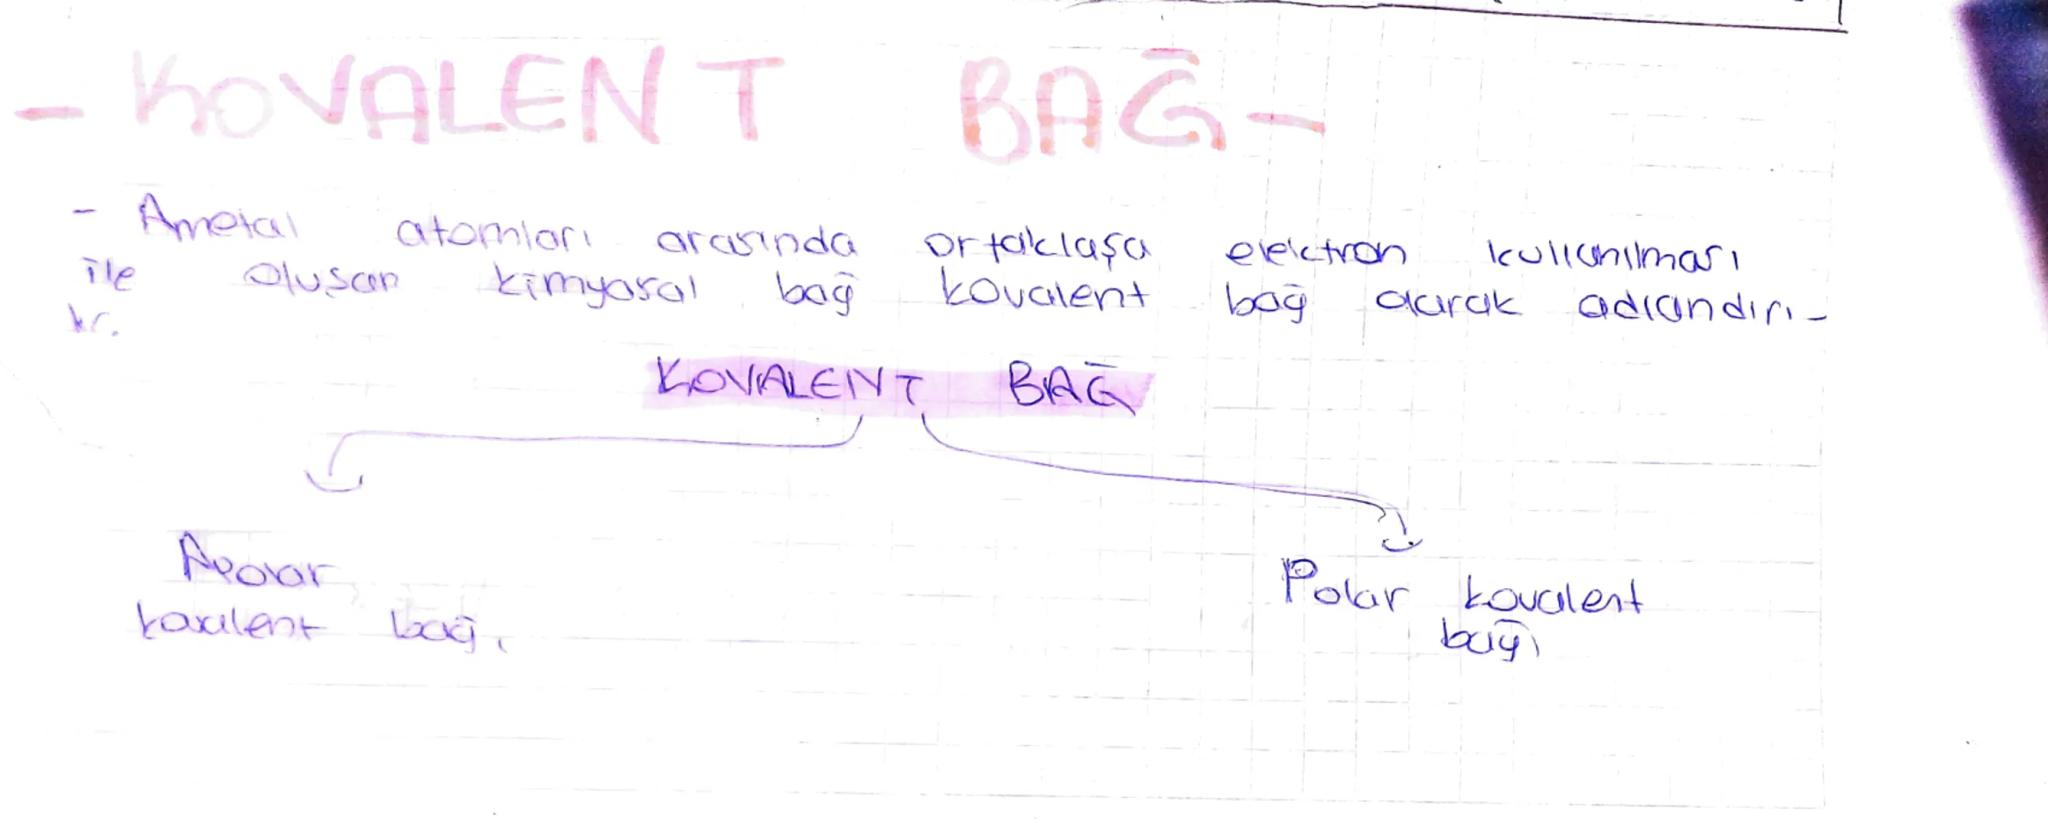 - KOVALENT BAĞ -
- Ametal atomları arasında ortaklaşa elektron kullanılması
ile oluşan kimyasal bağ kovalent bağ olarak adlandırı-
lır.
KOVALENT BAĞ
Apolar
kovalent bağı
Polar kovalent
bağı